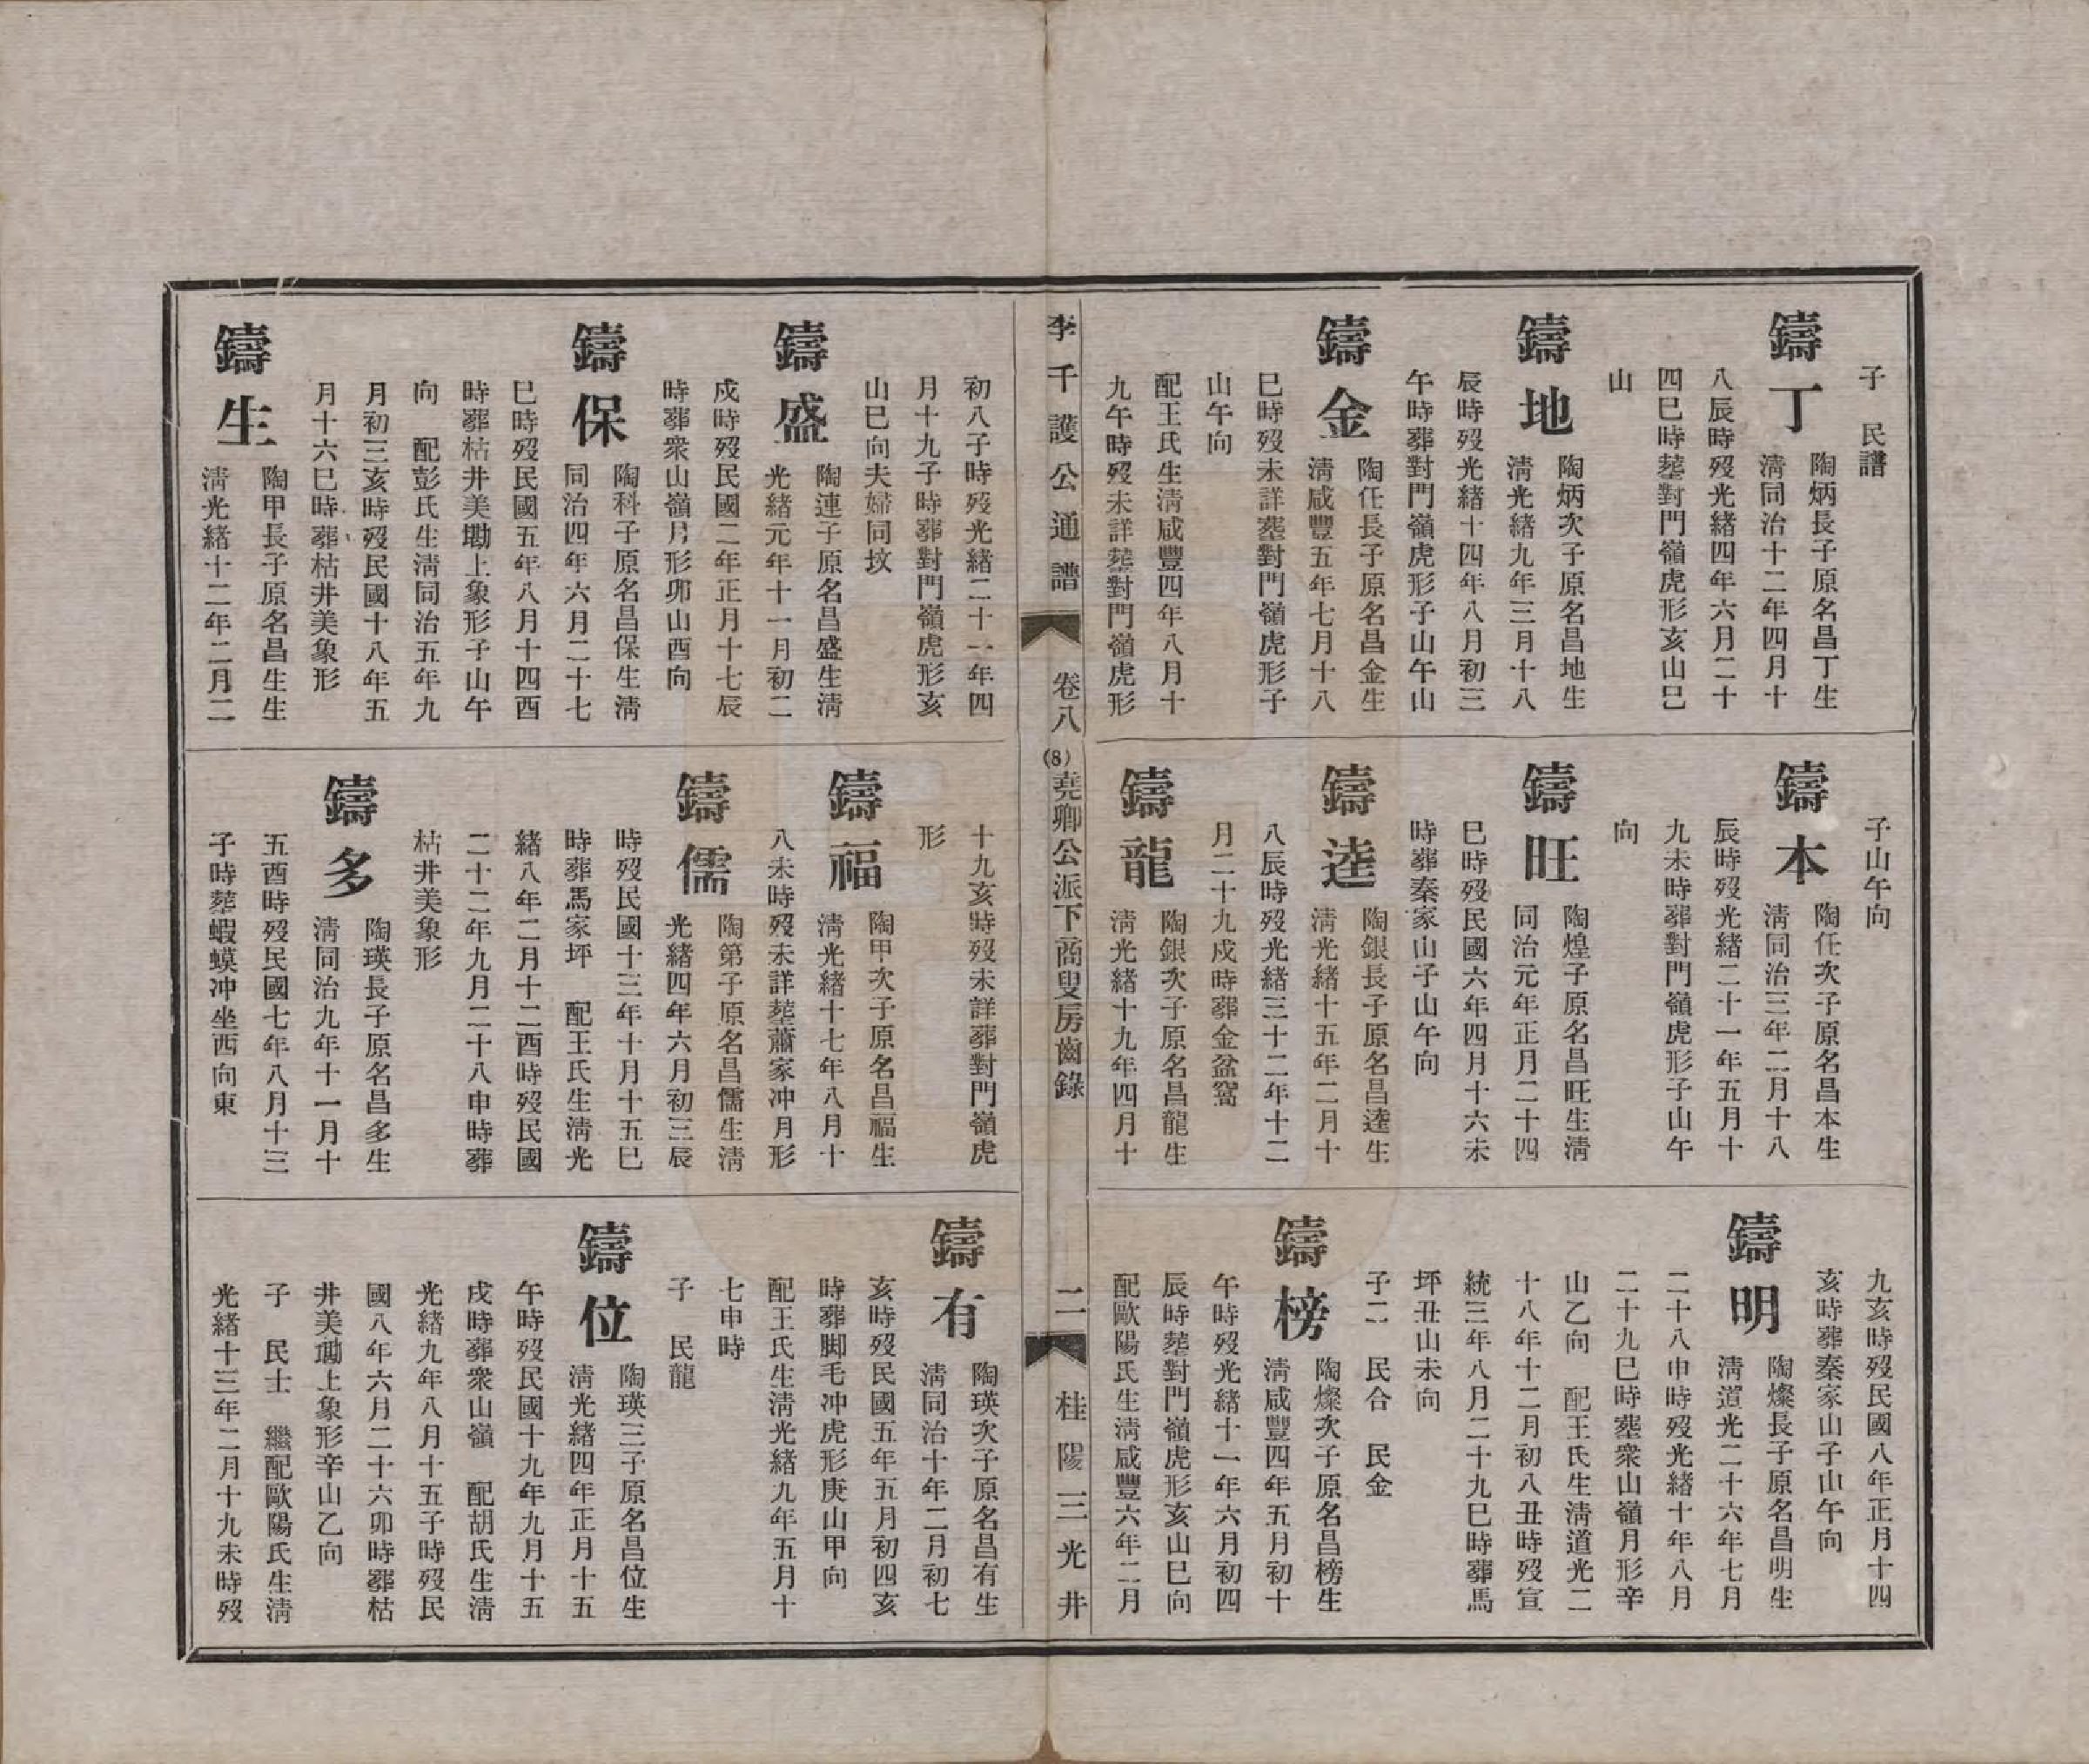 子　民譜
鑄丁 陶炳長子原名昌丁生
清同治十二年四月十
八辰時歿光緒四年六月二十
四巳時葬對門嶺虎形亥山巳
山
鑄地 陶炳次子原名昌地生
清光緒九年三月十八
辰時歿光緒十四年八月初三
午時葬對門嶺虎形子山午山
鑄金 陶任長子原名昌金生
清咸豐五年七月十八
巳時歿未詳葬對門嶺虎形子
山午向
配王氏生清咸豐四年八月十
九午時歿未詳葬對門嶺虎形
子山午向
鑄本 陶任次子原名昌本生
清同治三年二月十八
辰時歿光緒二十一年五月十
九未時葬對門嶺虎形子山午
向
鑄旺 陶煌子原名昌旺生清
同治元年正月二十四
巳時歿民國六年四月十六未
時葬秦家山子山午向
鑄逵 陶銀長子原名昌逵生
清光緒十五年二月十
八辰時歿光緒三十二年十二
月二十九戍時葬金盆窩
鑄龍 陶銀次子原名昌龍生
清光緒十九年四月十
九亥時歿民國八年正月十四
亥時葬秦家山子山午向
鑄明 陶燦長子原名昌明生
清道光二十六年七月
二十八申時歿光緒十年八月
二十九巳時葬衆山嶺月形辛
山乙向　配王氏生清道光二
十八年十二月初八丑時歿宣
統三年八月二十九巳時葬馬
坪丑山未向
子二　民合　民金
鑄榜 陶燦次子原名昌榜生
清咸豐四年五月初十
午時歿光緒十一年六月初四
辰時葬對門嶺虎形亥山巳向
配歐陽氏生清咸豐六年二月
李千護公通譜　卷八　(8)堯卿公派下商叟房齒錄　二　桂陽三光井
初八子時歿光緒二十一年四
月十九子時葬對門嶺虎形亥
山巳向夫婦同坟
鑄盛 陶連子原名昌盛生清
光緒元年十一月初二
戍時歿民國二年正月十七辰
時葬衆山嶺月形卯山酉向
鑄保 陶科子原名昌保生清
同治四年六月二十七
巳時歿民國五年八月十四酉
時葬枯井美墈上象形子山午
向　配彭氏生清同治五年九
月初三亥時歿民國十八年五
月十六巳時葬枯井美象形
鑄生 陶甲長子原名昌生生
清光緒十二年二月二
十九亥時歿未詳葬對門嶺虎
形
鑄福 陶甲次子原名昌福生
清光緒十七年八月十
八未時歿未詳葬蕭家冲月形
鑄儒 陶第子原名昌儒生清
光緒四年六月初三辰
時歿民國十三年十月十五巳
時葬馬家坪　配王氏生清光
緒八年二月十二酉時歿民國
二十二年九月二十八申時葬
枯井美象形
鑄多 陶瑛長子原名昌多生
清同治九年十一月十
五酉時歿民國七年八月十三
子時葬蝦蟆冲坐西向東
鑄有 陶瑛次子原名昌有生
清同治十年二月初七
亥時歿民國五年五月初四亥
時葬脚毛冲虎形庚山甲向
配王氏生清光緒九年五月十
七申時
子　民龍
鑄位 陶瑛三子原名昌位生
清光緒四年正月十五
午時歿民國十九年九月十五
戍時葬衆山嶺　配胡氏生清
光緒九年八月十五子時歿民
國八年六月二十六卯時葬枯
井美墈上象形辛山乙向
子　民士　繼配歐陽氏生清
光緒十三年二月十九未時歿